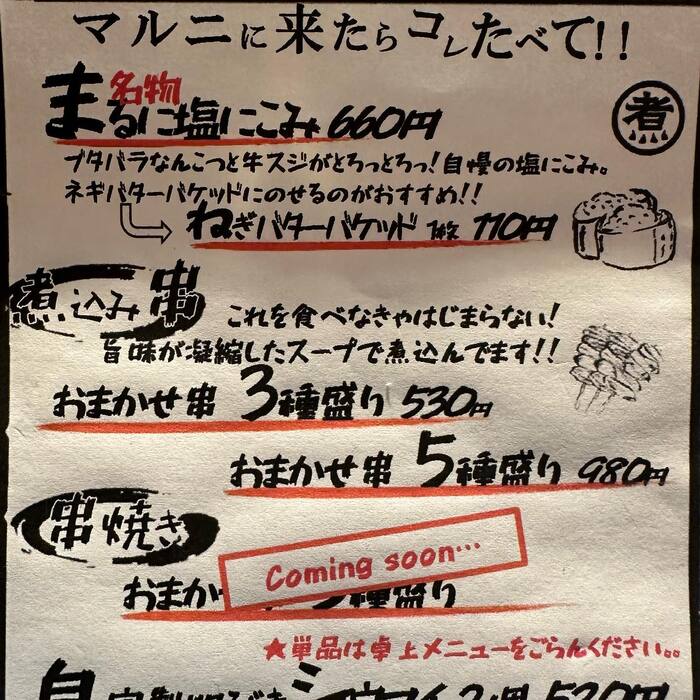 マルニに来たらコレたべて!!
名物
まるに塩にこみ 660円
煮
ブタバラなんこつと牛スジがとろっとろっ!自慢の塩にこみ。
ネギバターバケッドにのせるのがおすすめ!!
ねぎバターバケッド 1枚 110円
煮込み串
これを食べなきゃはじまらない!
旨味が凝縮したスープで煮込んでます!!
おまかせ串 3種盛り 530円
おまかせ串 5種盛り 980円
串焼き
Coming soon…
おまか 種盛り
★単品は卓上メニューをごらんください。